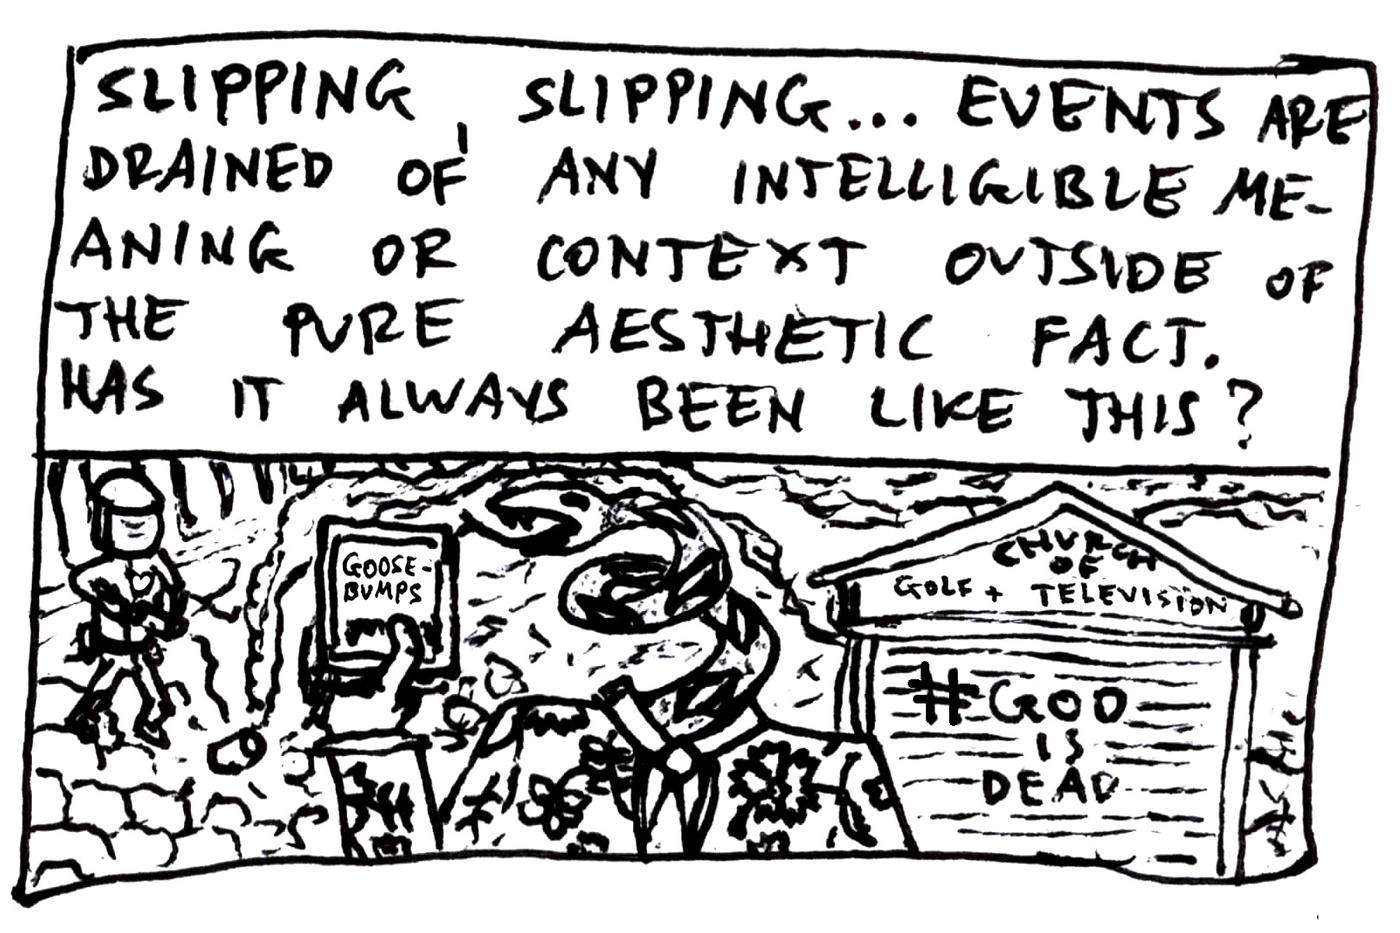 SLIPPING, SLIPPING... EVENTS ARE
DRAINED OF ANY INTELLIGIBLE ME-
ANING OR CONTEXT OUTSIDE OF
THE PURE AESTHETIC FACT.
HAS IT ALWAYS BEEN LIKE THIS?
GOOSE-
BUMPS
CHURCH
OF
GOLF + TELEVISION
#GOD
IS
DEAD